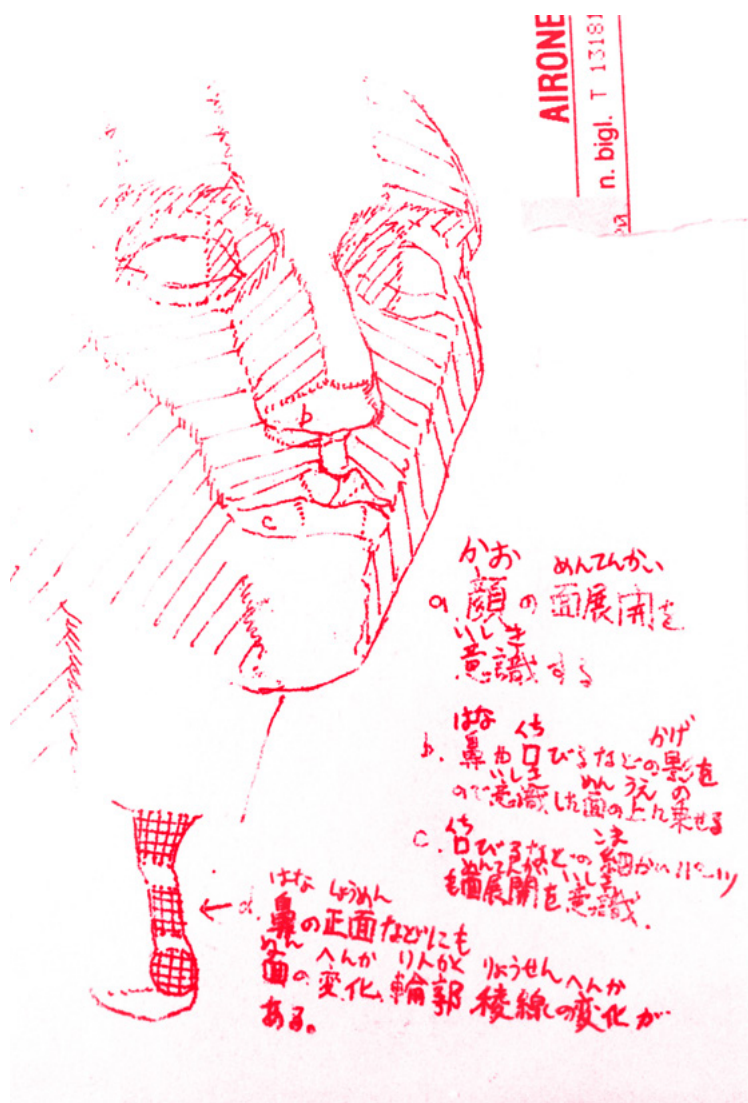 AIRONE
n. bigl. T 13181
b
c
かお めんてんかい
a. 顔の面展開を
いしき
意識する
はな くち かげ
b. 鼻や口びるなどの影を
いしき めん うえ の
ので意識した面の上に乗せる
くち こま
c. 口びるなどの細かいパーツ
めんてんかい いしき
も面展開を意識.
はな しょうめん
← d. 鼻の正面などにも
めん へんか りんかく りょうせん へんか
面の変化、輪郭 稜線の変化が
ある。